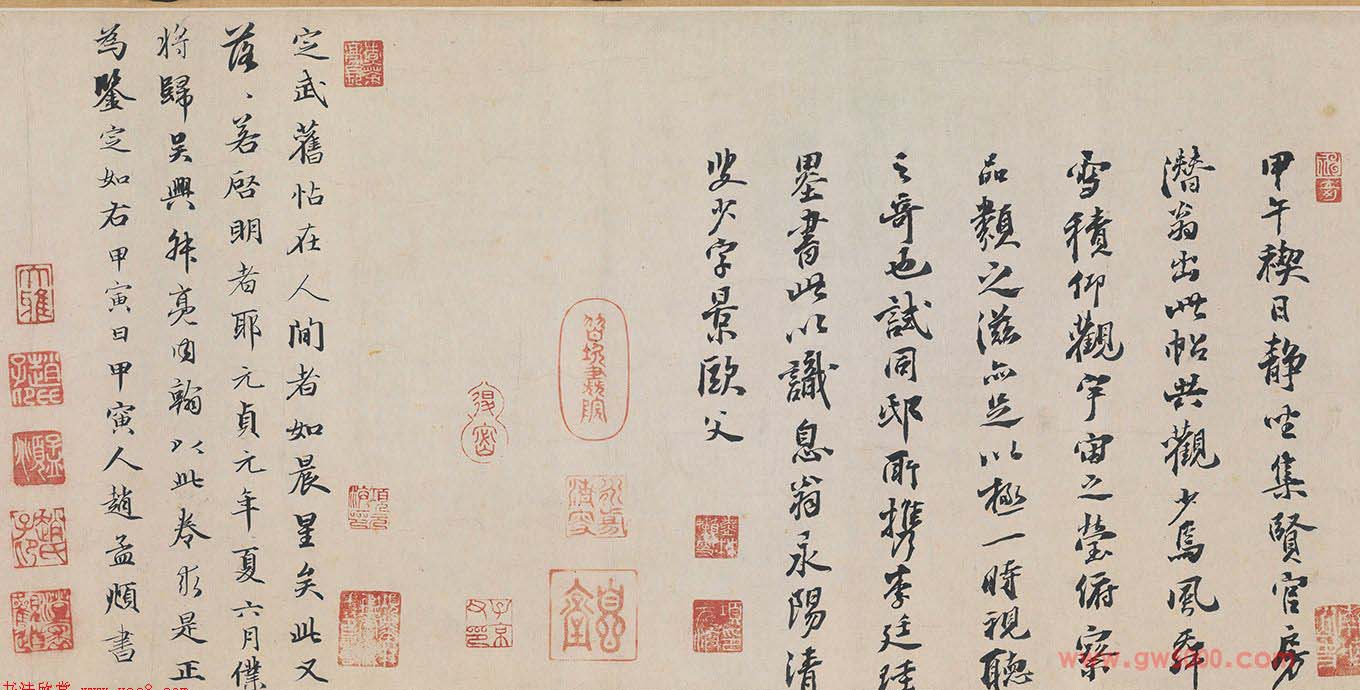 甲午稧日静坐集賢官房
潛翁出此帖共觀少焉風舞
雪積仰觀宇宙之瑩俯察
品類之滋亦足以極一時視聽
之奇也試同邸所攜李廷珪
墨書此以識息翁永陽清
叟少字景歐父
定武舊帖在人間者如晨星矣此又
落〻若啓明者耶元貞元年夏六月僕
将歸吴興叔亮内翰以此卷求是正
為鑒定如右甲寅日甲寅人趙孟頫書
大雅
趙氏子昂
趙氏子昂